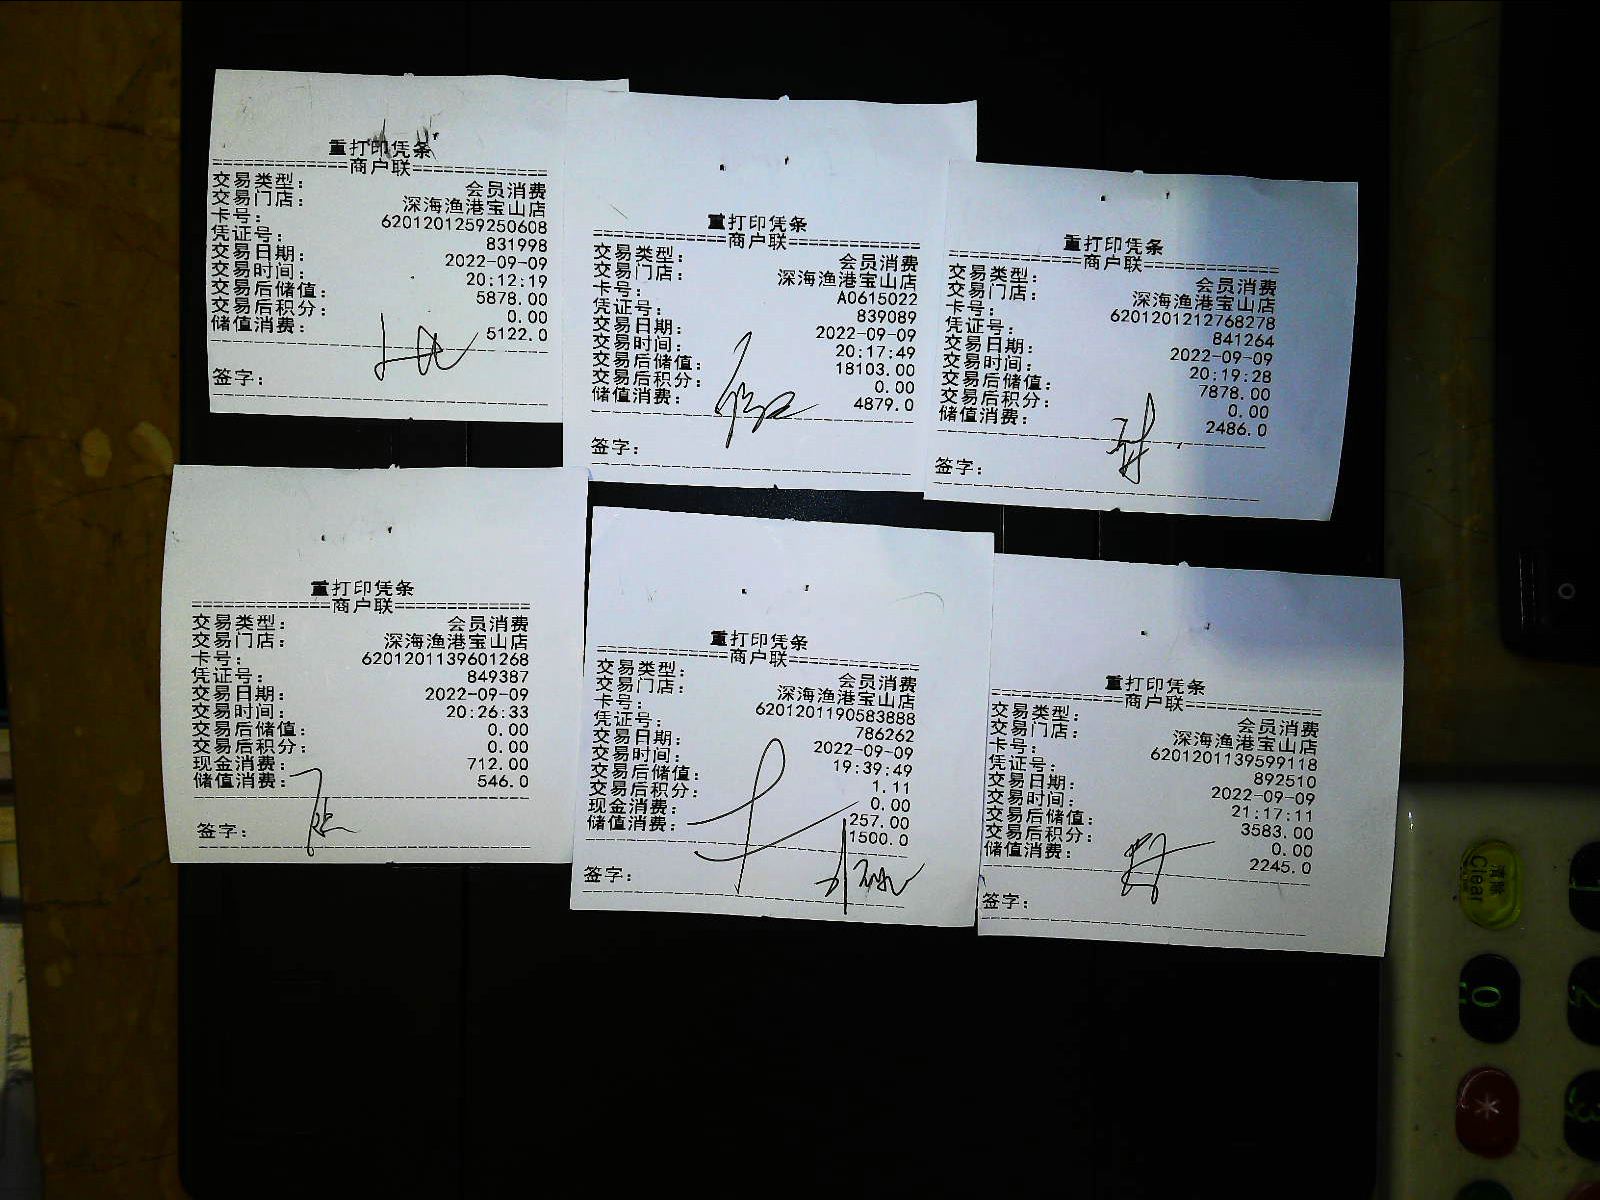 重打印凭条
=============商户联=============
交易类型： 会员消费
交易门店： 深海渔港宝山店
卡号： 6201201259250608
凭证号： 831998
交易日期： 2022-09-09
交易时间： 20:12:19
交易后储值： 5878.00
交易后积分： 0.00
储值消费： 5122.0
签字：
重打印凭条
=============商户联=============
交易类型： 会员消费
交易门店： 深海渔港宝山店
卡号： A0615022
凭证号： 839089
交易日期： 2022-09-09
交易时间： 20:17:49
交易后储值： 18103.00
交易后积分： 0.00
储值消费： 4879.0
签字：
重打印凭条
=============商户联=============
交易类型： 会员消费
交易门店： 深海渔港宝山店
卡号： 6201201212768278
凭证号： 841264
交易日期： 2022-09-09
交易时间： 20:19:28
交易后储值： 7878.00
交易后积分： 0.00
储值消费： 2486.0
签字：
重打印凭条
=============商户联=============
交易类型： 会员消费
交易门店： 深海渔港宝山店
卡号： 6201201139601268
凭证号： 849387
交易日期： 2022-09-09
交易时间： 20:26:33
交易后储值： 0.00
交易后积分： 0.00
现金消费： 712.00
储值消费： 546.0
签字：
重打印凭条
=============商户联=============
交易类型： 会员消费
交易门店： 深海渔港宝山店
卡号： 6201201190583888
凭证号： 786262
交易日期： 2022-09-09
交易时间： 19:39:49
交易后储值： 1.11
交易后积分： 0.00
现金消费： 257.00
储值消费： 1500.0
签字：
重打印凭条
=============商户联=============
交易类型： 会员消费
交易门店： 深海渔港宝山店
卡号： 6201201139599118
凭证号： 892510
交易日期： 2022-09-09
交易时间： 21:17:11
交易后储值： 3583.00
交易后积分： 0.00
储值消费： 2245.0
签字：
清除
Clear
0
2
3
*